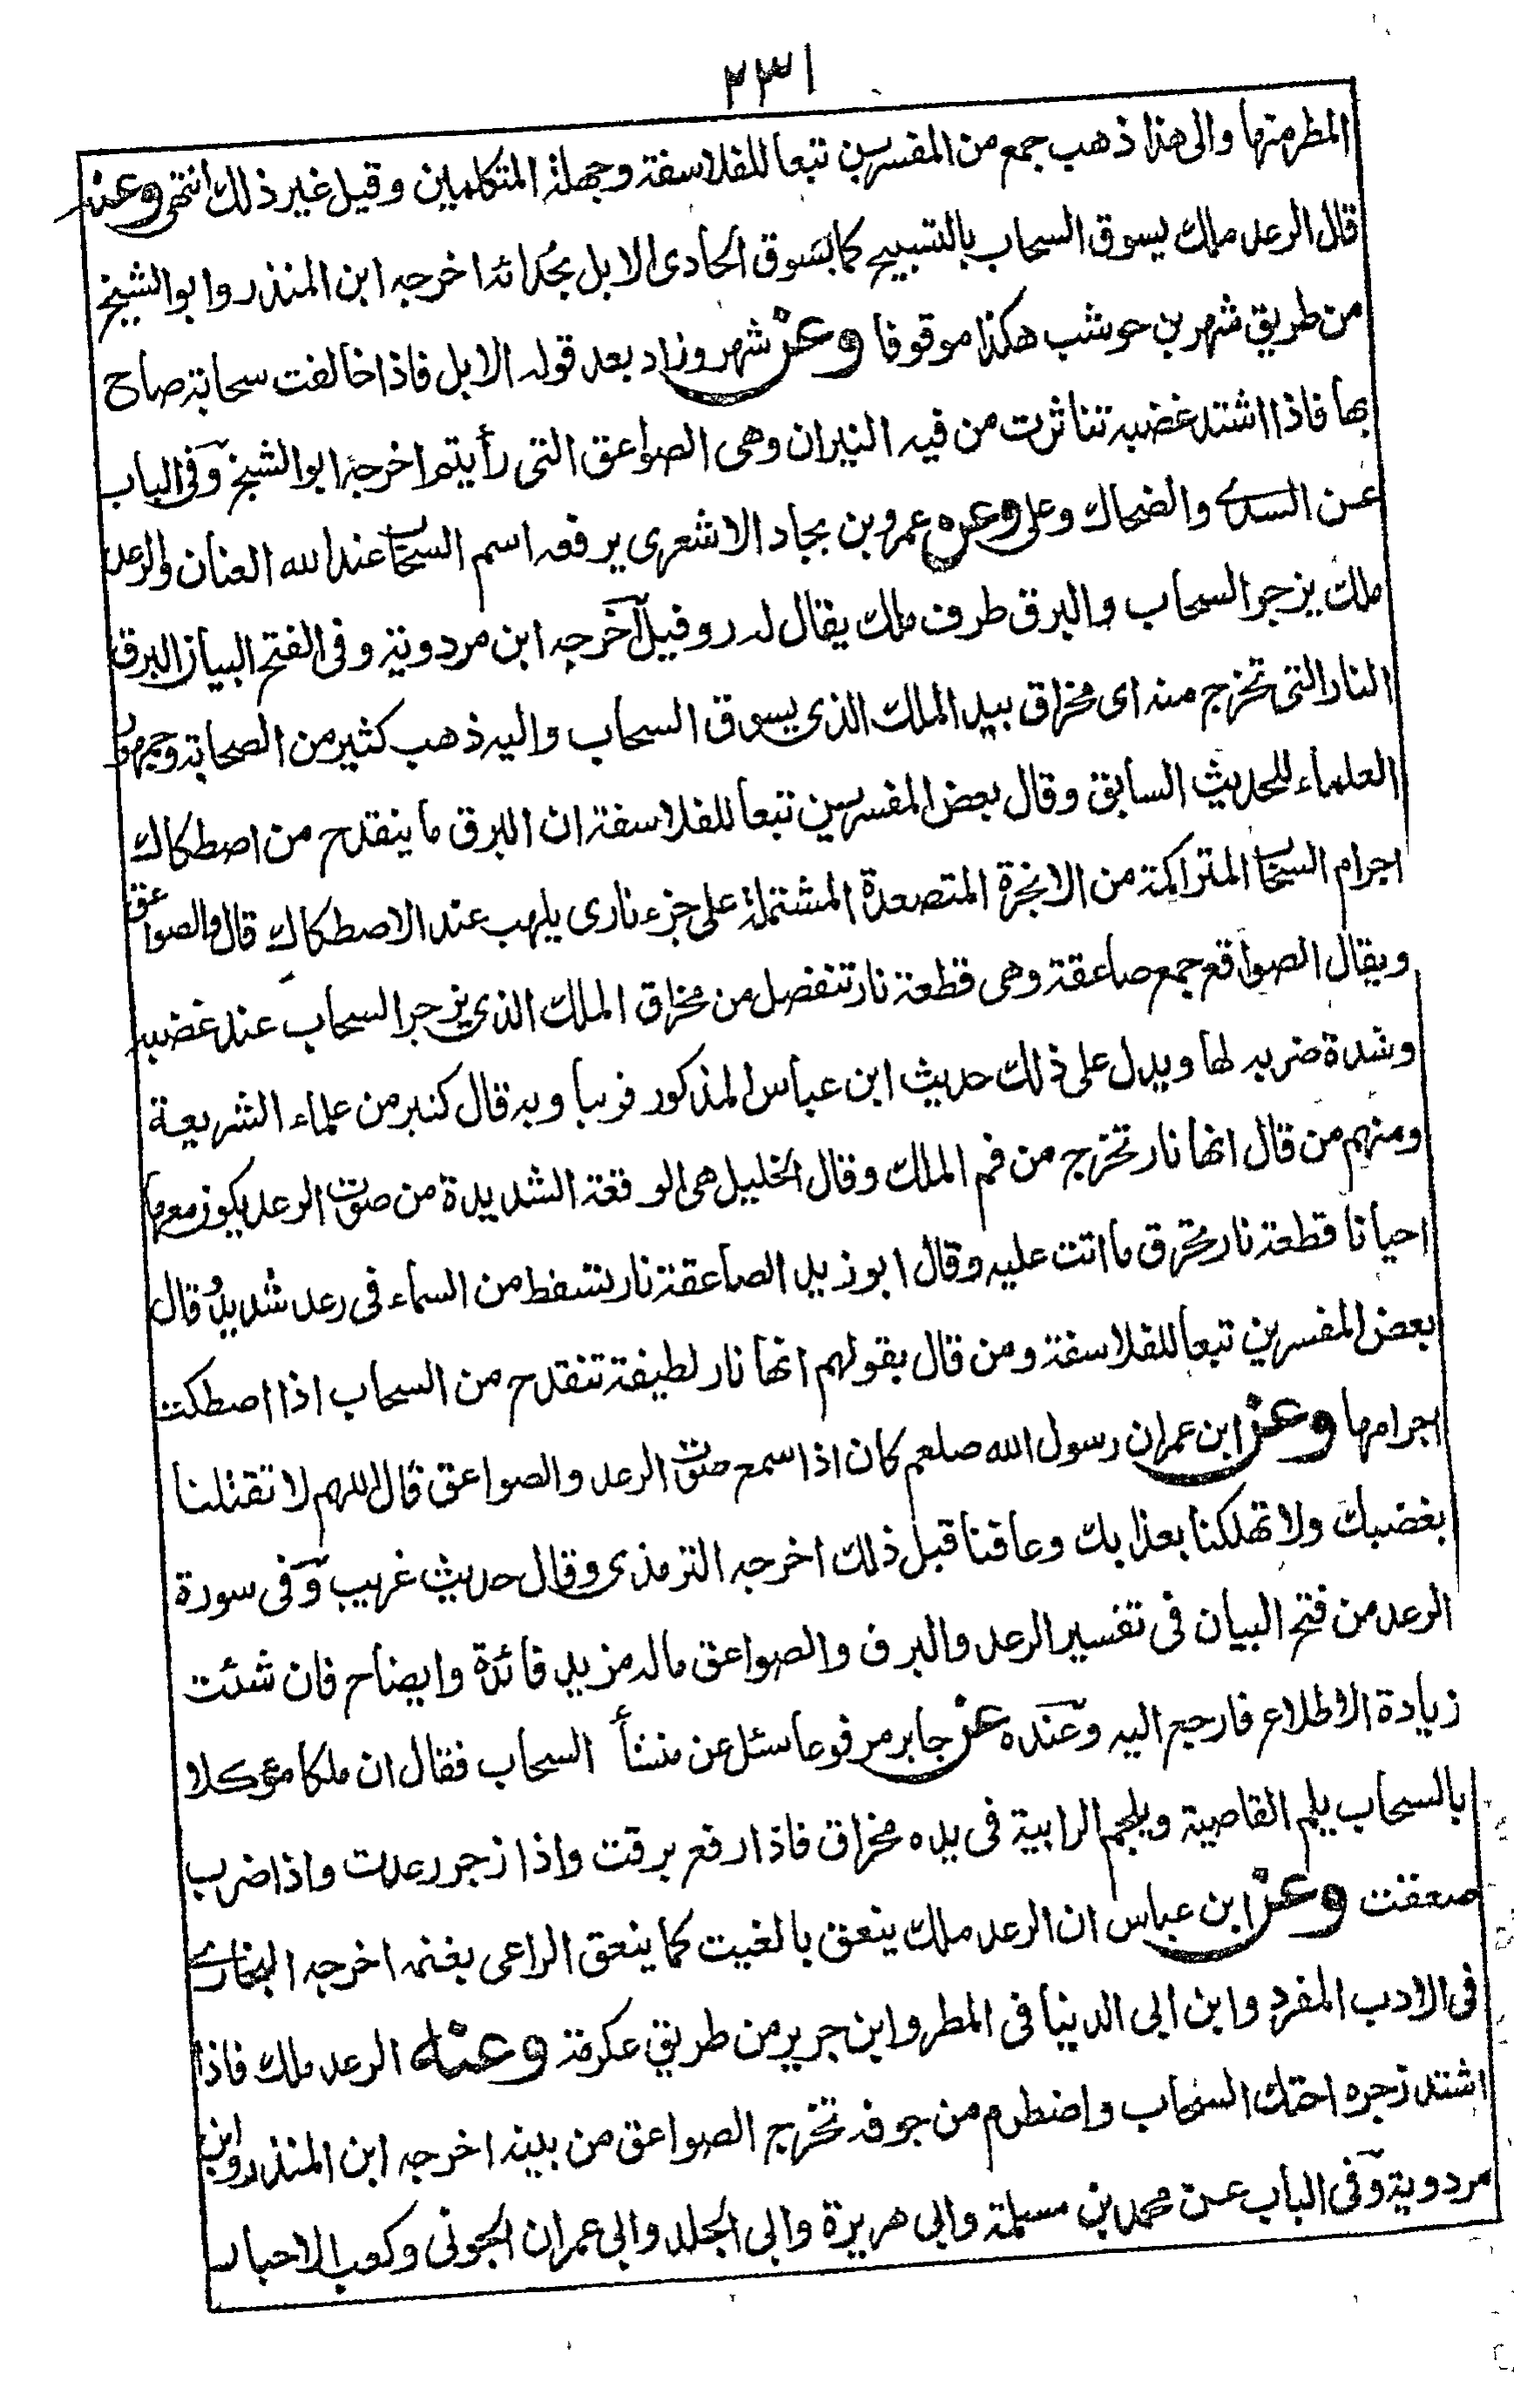 ٢٣١
المطر منها والى هذا ذهب جمع من المفسرين تبعا للفلاسفة وجهلة المتكلمين وقيل غير ذلك انتهى وعنه
قال الرعد ملك يسوق السحاب بالتسبيح كما يسوق الحادى الابل بحدائه اخرجه ابن المنذر وابو الشيخ
من طريق شهر بن حوشب هكذا موقوفا وعن شهر وزاد بعد قوله الابل فاذا خالفت سحابة صاح
بها فاذا اشتد غضبه تناثرت من فيه النيران وهى الصواعق التى رأيتم اخرجه ابو الشيخ وفى الباب
عن السدى والضحاك وعلى وعن عمرو بن بجاد الاشعرى يرفعه اسم السحاب عند الله العنان والرعد
ملك يزجر السحاب والبرق طرف ملك يقال له روفيل اخرجه ابن مردوية وفى الفتح البيان البرق
النار التى تخرج منه اى مخراق بيد الملك الذى يسوق السحاب واليه ذهب كثير من الصحابة وجمهور
العلماء للحديث السابق وقال بعض المفسرين تبعا للفلاسفة ان البرق ما ينقدح من اصطكاك
اجرام السحاب المتراكمة من الابخرة المتصعدة المشتملة على جزء نارى يلهب عند الاصطكاك قال والصواعق
ويقال الصواقع جمع صاعقة وهى قطعة نار تنفصل من مخراق الملك الذى يزجر السحاب عند غضبه
وشدة ضربه لها ويدل على ذلك حديث ابن عباس المذكور قريبا وبه قال كثير من علماء الشريعة
ومنهم من قال انها نار تخرج من فم الملك وقال الخليل هى الوقعة الشديدة من صوت الرعد يكون معها
احيانا قطعة نار تحرق ما اتت عليه وقال ابو زيد الصاعقة نار تسقط من السماء فى رعد شديد وقال
بعض المفسرين تبعا للفلاسفة ومن قال بقولهم انها نار لطيفة تنقدح من السحاب اذا اصطكت
اجرامها وعن ابن عمر ان رسول الله صلعم كان اذا سمع صوت الرعد والصواعق قال اللهم لا تقتلنا
بغضبك ولا تهلكنا بعذابك وعافنا قبل ذلك اخرجه الترمذى وقال حديث غريب وفى سورة
الرعد من فتح البيان فى تفسير الرعد والبرق والصواعق ما له مزيد فائدة وايضاح فان شئت
زيادة الاطلاع فارجع اليه وعنده عن جابر مرفوعا سئل عن منشأ السحاب فقال ان ملكا موكلا
بالسحاب يلم القاصية ويلحم الرابية فى يده مخراق فاذا رفع برقت واذا زجر رعدت واذا ضرب
صعقت وعن ابن عباس ان الرعد ملك ينعق بالغيث كما ينعق الراعى بغنمه اخرجه البخارى
فى الادب المفرد وابن ابى الدنيا فى المطر وابن جرير من طريق عكرمة وعنه الرعد ملك فاذا
اشتد زجره احتك السحاب واضطرم من جوفه تخرج الصواعق من بينه اخرجه ابن المنذر وابن
مردوية وفى الباب عن محمد بن مسلمة وابى هريرة وابى الجلد وابى عمران الجونى وكعب الاحبار